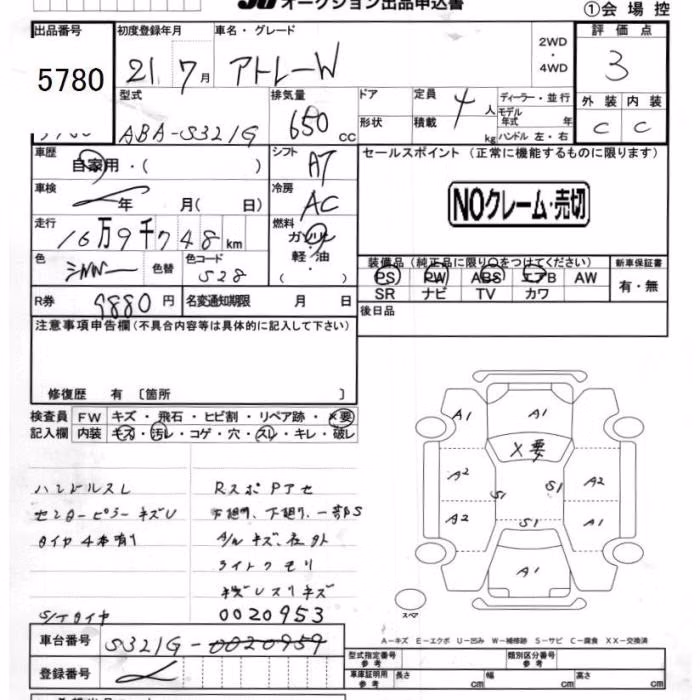 オークション出品申込書
①会場控
出品番号 初度登録年月 車名・グレード 2WD・4WD 評価点
5780 21年 7月 アトレーW 3
型式 排気量 ドア 定員 ディーラー・並行 外装 内装
ABA-S321G 650cc 形状 積載 4人 kg モデル年式 年 ハンドル 左・右 C C
車歴 自家用・( ) シフト AT セールスポイント (正常に機能するものに限ります)
車検 年 月( 日) 冷房 AC NOクレーム・売切
走行 16万9千748km 燃料 ガソリン 軽・油 ( )
色 シルバー 色替 色コード S28
装備品(純正品に限り○をつけてください) 新車保証書
PS PW ABS エアB AW 有・無
SR ナビ TV カワ
R券 9880円 名変通知期限 月 日 後日品
注意事項申告欄(不具合内容等は具体的に記入して下さい)
修復歴 有 〔箇所 〕
検査員 FW キズ・飛石・ヒビ割・リペア跡・×要
記入欄 内装 キズ・汚レ・コゲ・穴・スレ・キレ・破レ
A1 A1
X要
A2 A2
S1 S1
A2 S1 A1
A1
スペア
ハンドルスレ RスポPアセ
センターピラーキズU 下廻り、一部S
タイヤ4本有り A/Wキズ、社外
ライトクモリ
キズUスリキズ
S/Tタイヤ 0020953
A-キズ E-エクボ U-凹み W-補修跡 S-サビ C-腐食 XX-交換済
車台番号 S321G-0020959
型式指定番号 参考 類別区分番号 参考
登録番号 車庫証明用 参考 長さ cm 幅 cm 高さ cm